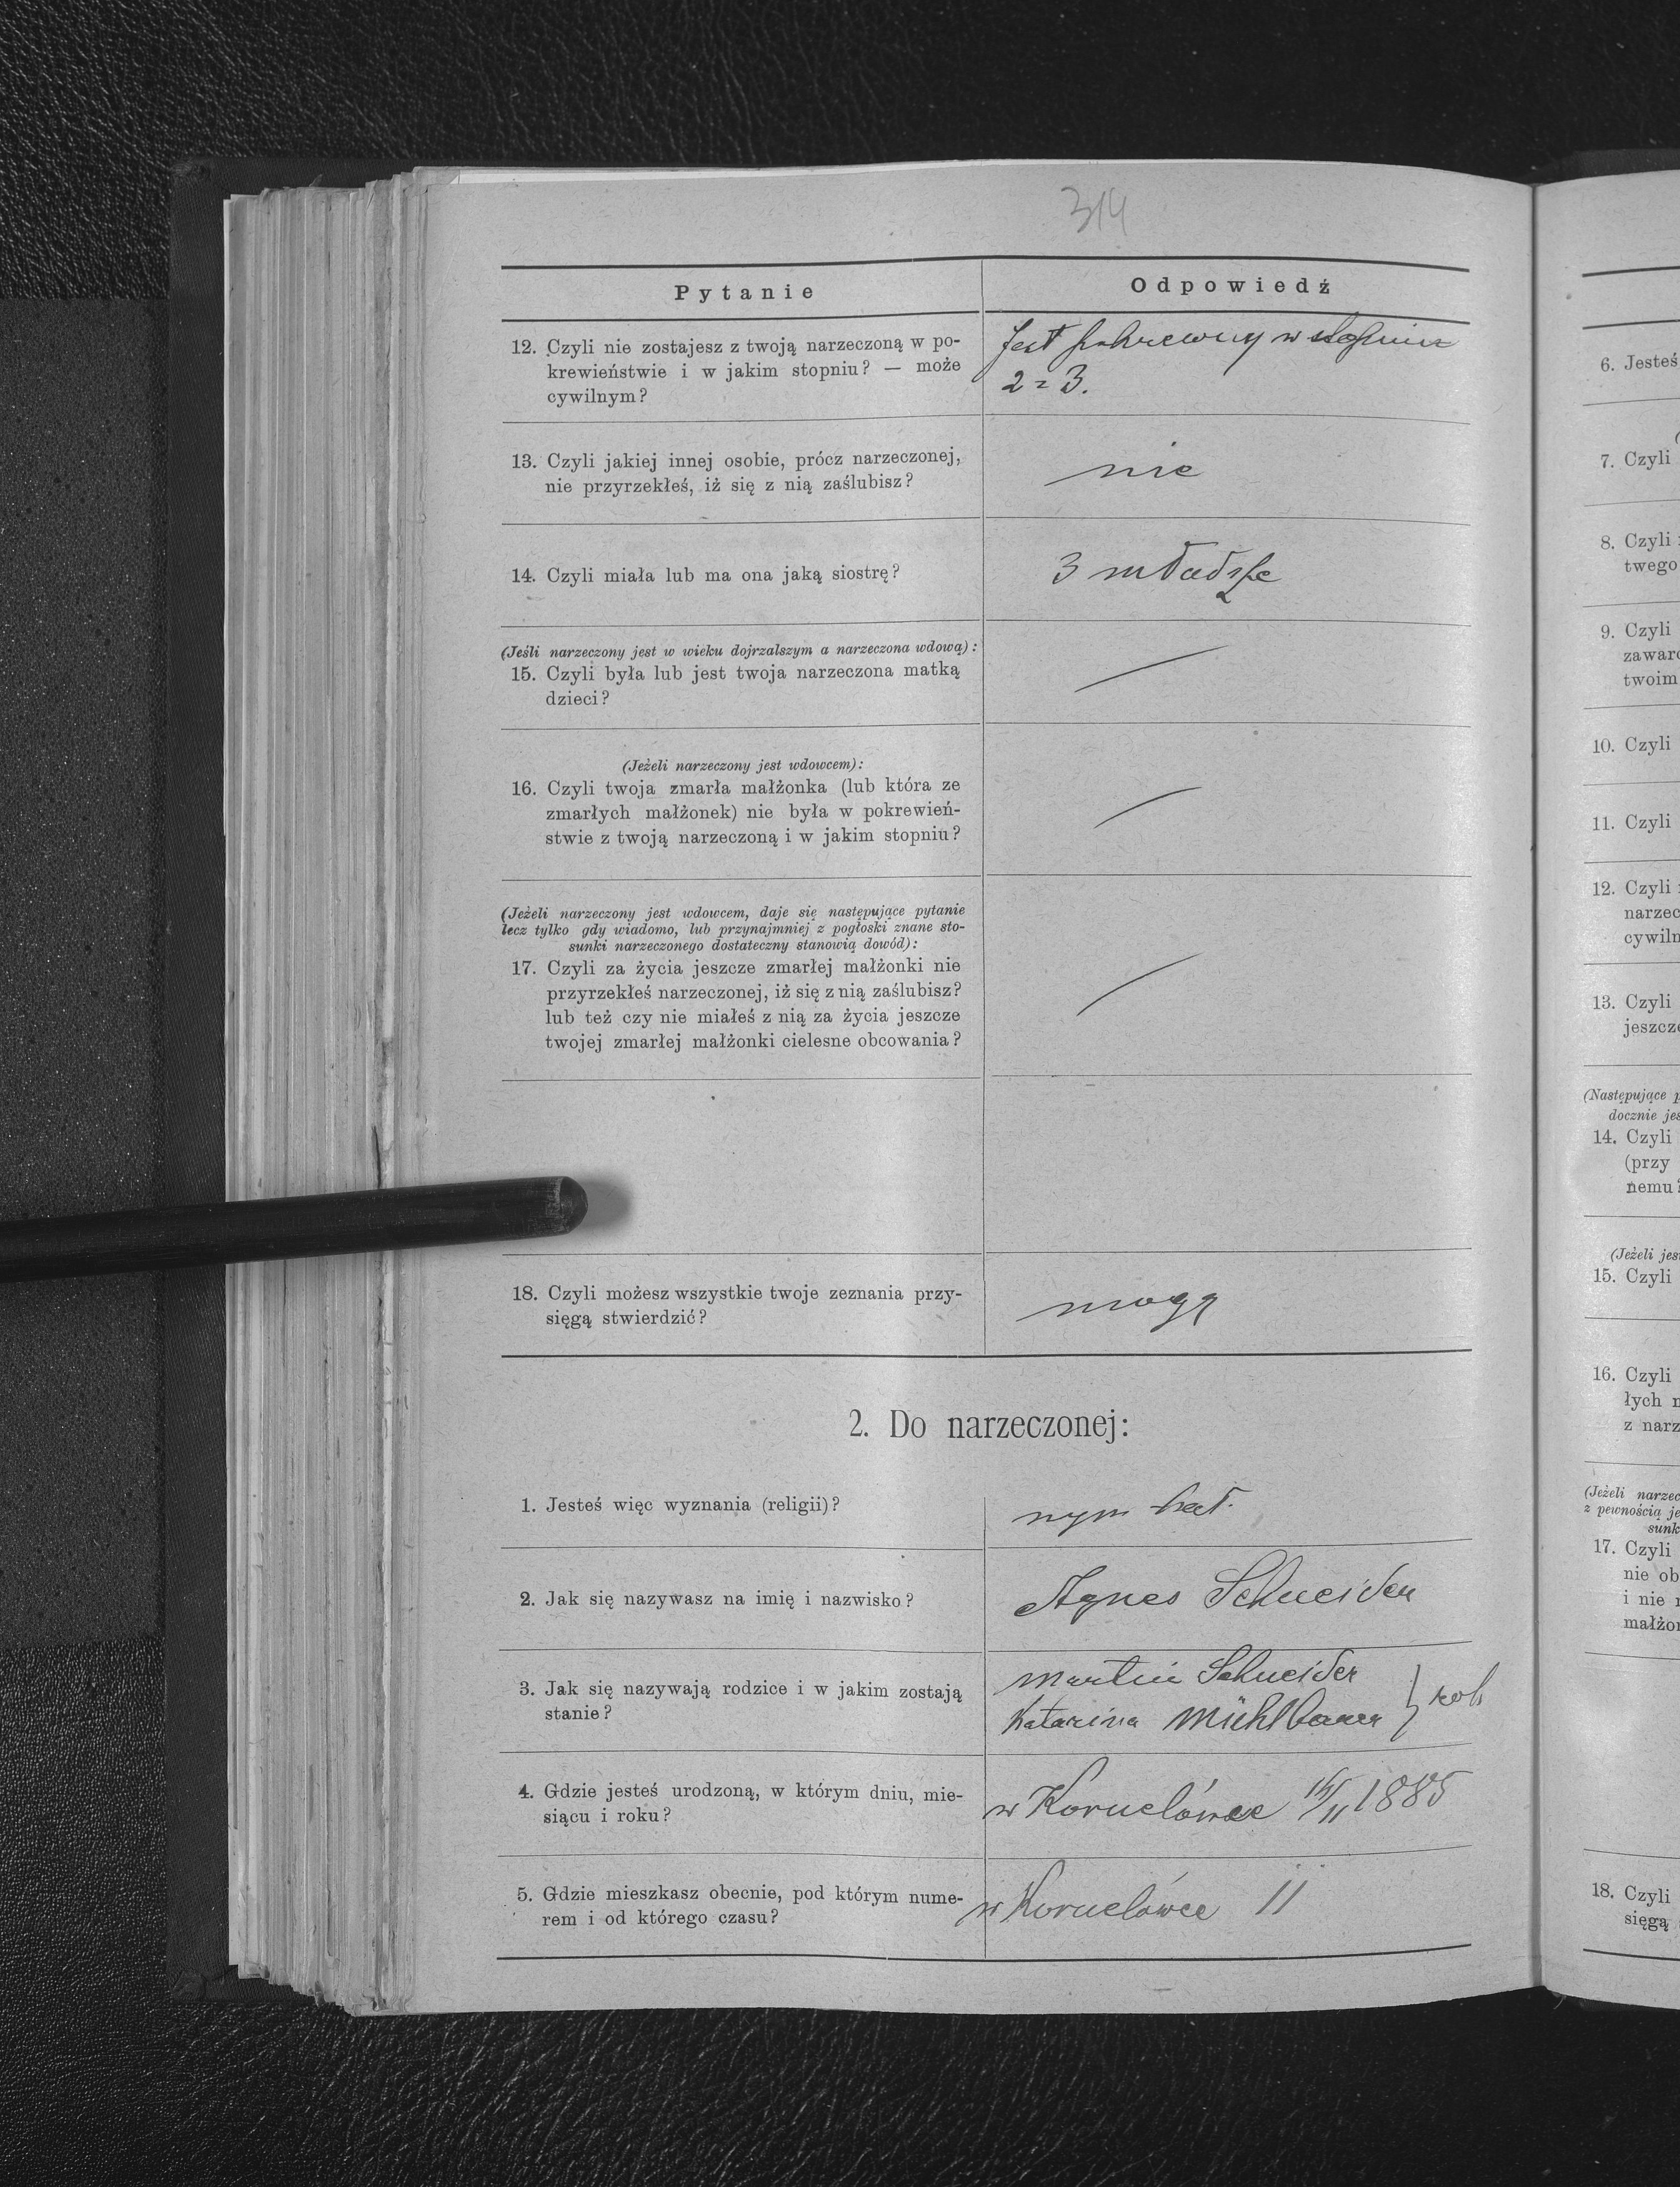 314
Pytanie
Odpowiedź
12. Czyli nie zostajesz z twoją narzeczoną w po-
krewieństwie i w jakim stopniu? — może
cywilnym?
Jest pokrewny w stopniu
2 = 3.
13. Czyli jakiej innej osobie, prócz narzeczonej,
nie przyrzekłeś, iż się z nią zaślubisz?
nie
14. Czyli miała lub ma ona jaką siostrę?
3 młodsze
(Jeśli narzeczony jest w wieku dojrzalszym a narzeczona wdową):
15. Czyli była lub jest twoja narzeczona matką
dzieci?
(Jeżeli narzeczony jest wdowcem):
16. Czyli twoja zmarła małżonka (lub która ze
zmarłych małżonek) nie była w pokrewień-
stwie z twoją narzeczoną i w jakim stopniu?
(Jeżeli narzeczony jest wdowcem, daje się następujące pytanie
lecz tylko gdy wiadomo, lub przynajmniej z pogłoski znane sto-
sunki narzeczonego dostateczny stanowią dowód):
17. Czyli za życia jeszcze zmarłej małżonki nie
przyrzekłeś narzeczonej, iż się z nią zaślubisz?
lub też czy nie miałeś z nią za życia jeszcze
twojej zmarłej małżonki cielesne obcowania?
18. Czyli możesz wszystkie twoje zeznania przy-
sięgą stwierdzić?
mogę
2. Do narzeczonej:
1. Jesteś więc wyznania (religii)?
rzym kat.
2. Jak się nazywasz na imię i nazwisko?
Agnes Schneider
3. Jak się nazywają rodzice i w jakim zostają
stanie?
Martin Schneider
Katarina Mühlbauer } rol
4. Gdzie jesteś urodzoną, w którym dniu, mie-
siącu i roku?
w Kornelówce 1885
5. Gdzie mieszkasz obecnie, pod którym nume-
rem i od którego czasu?
w Kornelówce 11
6. Jesteś
7. Czyli
8. Czyli
twego
9. Czyli
zawar
twoim
10. Czyli
11. Czyli
12. Czyli
narzec
cywiln
13. Czyli
jeszcze
(Następujące
docznie jes
14. Czyli
(przy
nemu?
(Jeżeli jes
15. Czyli
16. Czyli
łych
z narz
(Jeżeli narzec
z pewnością je
sunk
17. Czyli
nie ob
i nie
małżon
18. Czyli
sięgą